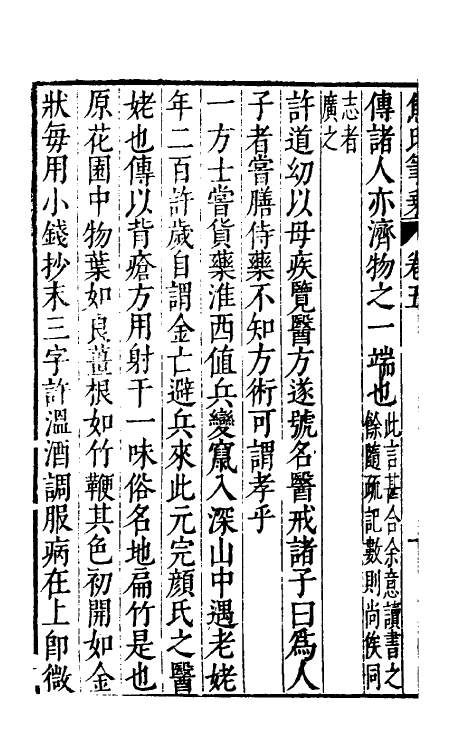 焦氏筆乗 卷五 十
傳諸人亦濟物之一端也此言甚合余意讀書之餘隨疏記數則尚俟同
志者廣之
許道幼以母疾覽醫方遂號名醫戒諸子曰爲人
子者嘗膳侍藥不知方術可謂孝乎
一方士嘗貨藥淮西值兵變竄入深山中遇老姥
年二百許歲自謂金亡避兵來此元完顔氏之醫
姥也傳以背瘡方用射干一味俗名地扁竹是也
原花園中物葉如良薑根如竹鞭其色初開如金
狀每用小錢抄末三字許溫酒調服病在上卽微